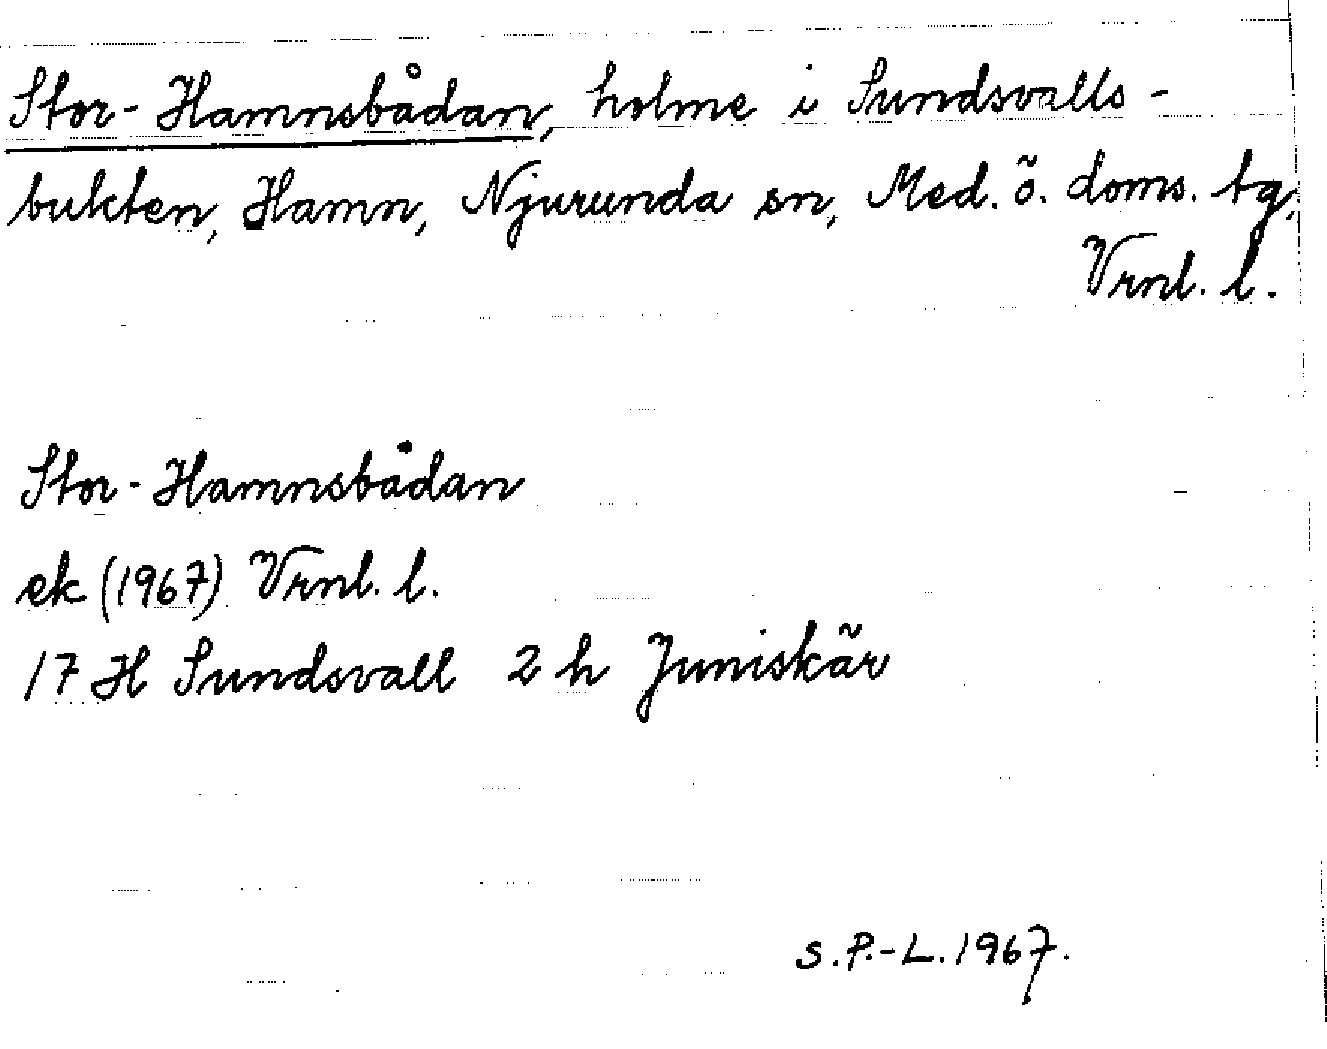 Stor-Hamnsbådan, holme i Sundsvalls-
bukten, Hamn, Njurunda sn, Med. ö. doms. tg,
Vrnl. l.
Stor-Hamnsbådan
ek (1967) Vrnl. l.
17 H Sundsvall 2 h Juniskär
S.P.-L. 1967.